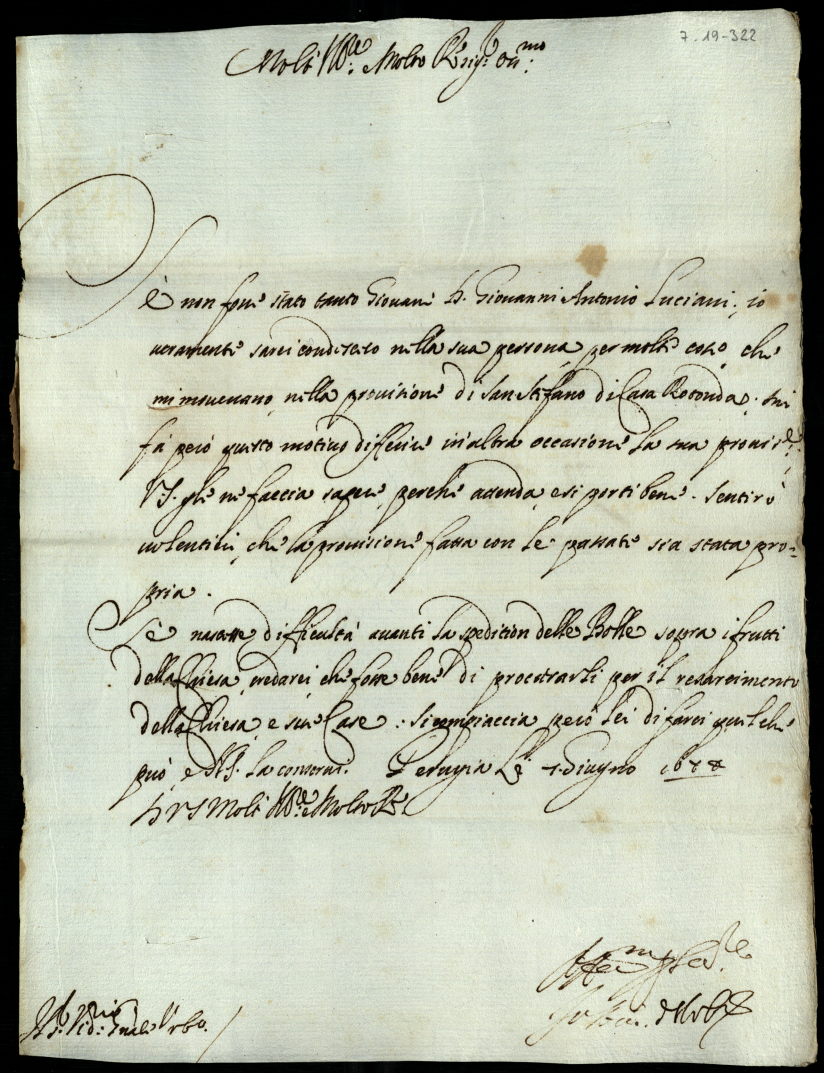 7.19-322
Molt Ill.e e Molto R.
Sè non fosse stato tanto Giovane D. Giovanni Antonio Luciani, io
veramente sarei condisceso nella sua persona per molte cose, che
mi movevano nella provisione di San Stefano di Casa Rotonda. mi
fà però questo motivo differire in altra occasione la sua provis.e
VS. gle ne faccia sapere, perche attenda, e si porti bene. Sentirò
volentieri, che la provisione fatta con le passate sia stata pro=
pria.
Sè nascesse difficultà avanti la spedition delle Bolle sopra i frutti
della Chiesa, crederei, che fosse bene di procurarli per il resarcimento
della Chiesa, e sue Case. Si compiaccia però lei di farci quel che
può, e N.S. la conservi. Perugia li Giugno
D VS Molt Ill.e e Molto R.